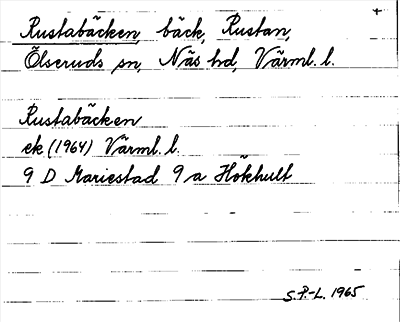 +
Rustabäcken, bäck, Rustan,
Ölseruds sn, Näs hd, Värml. l.
Rustabäcken
ek (1964) Värml. l.
9 D Mariestad 9 a Hökhult
S.P.-L. 1965